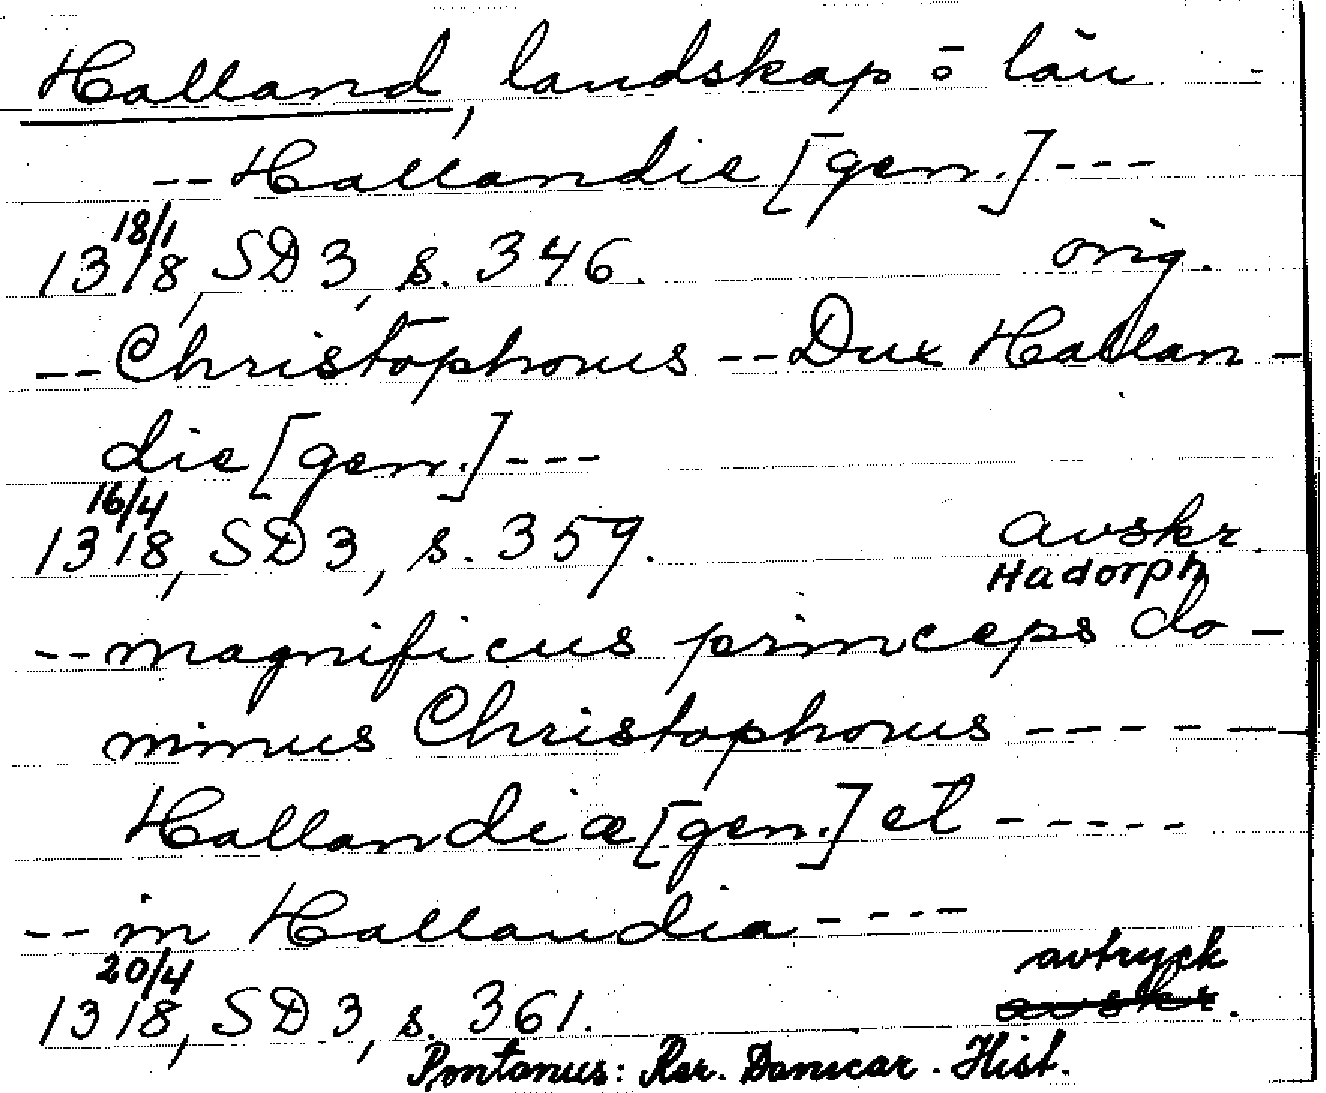 Halland, landskap o län
-- Hallandie [gen.] ---
18/1
1318, SD 3, s. 346. orig.
-- Christophorus -- Dux Hallan-
die [gen.] ---
16/4
1318, SD 3, s. 359. avskr.
Hadorph
-- magnificus princeps do-
minus Christophorus ------
Hallandiæ [gen.] et -----
-- in Hallandia ----
20/4 avtryck
1318, SD 3, s. 361. avskr.
Pontanus: Rer. Danicar. Hist.